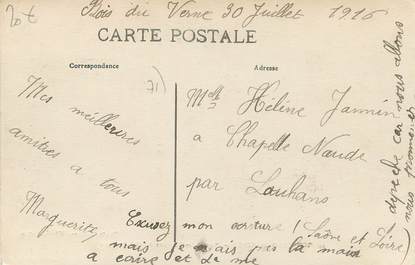 20 €
Bois du Verne 30 Juillet 1916
CARTE POSTALE
Correspondance
Adresse
71)
Mes meilleures
amitiés a tous
Marguerite
Melle Hélène Jannin
a Chapelle Naude
par Louhans
(Saône et Loire)
Exusez mon ecriture !
mais je n ais pas la main
a ecrire et je me
depeche car nous allons
nous promener